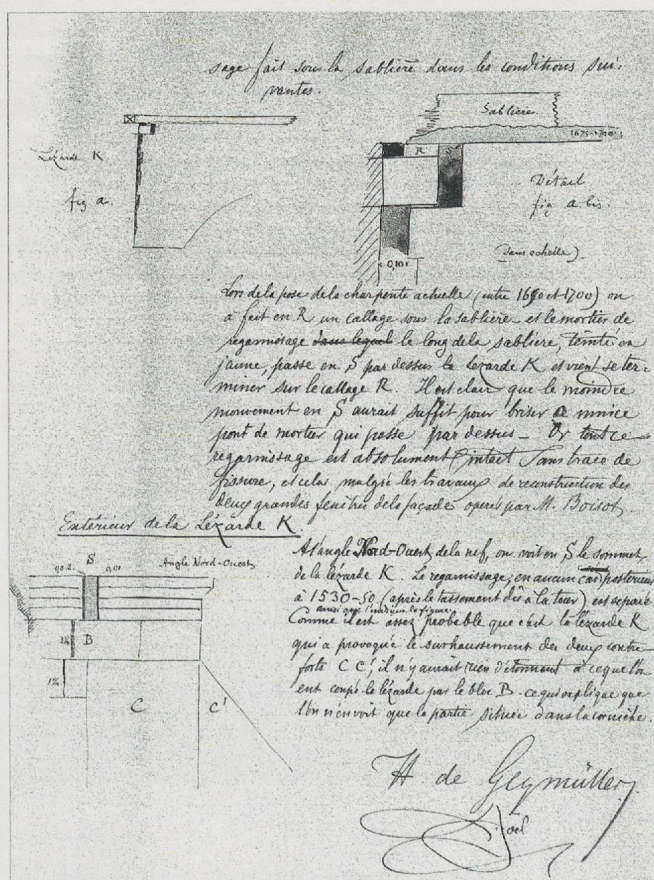 sage fait sous la sablière dans les conditions sui-
vantes.
Sablière
1675-1700
Lézarde K
fig a.
R S
Détail
fig a bis.
(sans echelle).
0,10
Lors de la pose de la charpente actuelle (entre 1690 et 1700) on
a fait en R un callage sous la sablière et le mortier de
regarnissage dans lequel le long de la sablière, teinté en
jaune, passe en S par dessus la lézarde K et vient se ter-
miner sur le callage R. Il est clair que le moindre
mouvement en S aurait suffit pour briser ce mince
pont de mortier qui passe par dessus – Or tout ce
regarnissage est absolument intact sans trace de
fissure, et cela malgré les travaux de reconstruction des
deux grandes fenêtres de la façade operés par M. Boisot.
Extérieur de la Lézarde K.
S
0,02 0,01
Angle Nord-Ouest
B
C
C'
A l'angle Nord-Ouest de la nef, on voit en S le sommet
de la lézarde K. Le regarnissage, en aucun cas postérieur
à 1530-50 (après le tassement dû à la tour) est séparé
ainsi que l'indique la figure.
Comme il est assez probable que c'est la lézarde K
qui a provoqué le surhaussement des deux contre-
forts C C', il n'y aurait rien d'étonnant à ce que l'on
ent coupé la lézarde par le bloc B. ce qui explique que
l'on n'en voit que la partie située dans la corniche.
H. de Geymüller